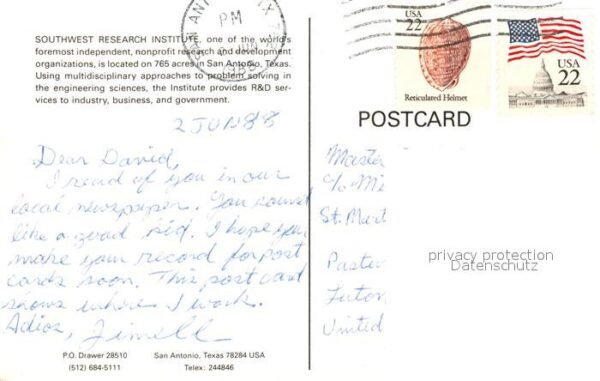 SOUTHWEST RESEARCH INSTITUTE, one of the world's
foremost independent, nonprofit research and development
organizations, is located on 765 acres in San Antonio, Texas.
Using multidisciplinary approaches to problem solving in
the engineering sciences, the Institute provides R&D ser-
vices to industry, business, and government.
SAN ANTONIO, TX
PM
USA
22
Reticulated Helmet
USA
22
POSTCARD
2 JUN 88
Dear David,
I read of you in our
local newspaper. You sound
like a good kid. I hope you
make your record for post
cards soon. This post card
shows where I work.
Adios, Jimell
Master
c/o Mi
St. Mart
Paste
United
privacy protection
Datenschutz
P.O. Drawer 28510 San Antonio, Texas 78284 USA
(512) 684-5111 Telex: 244846